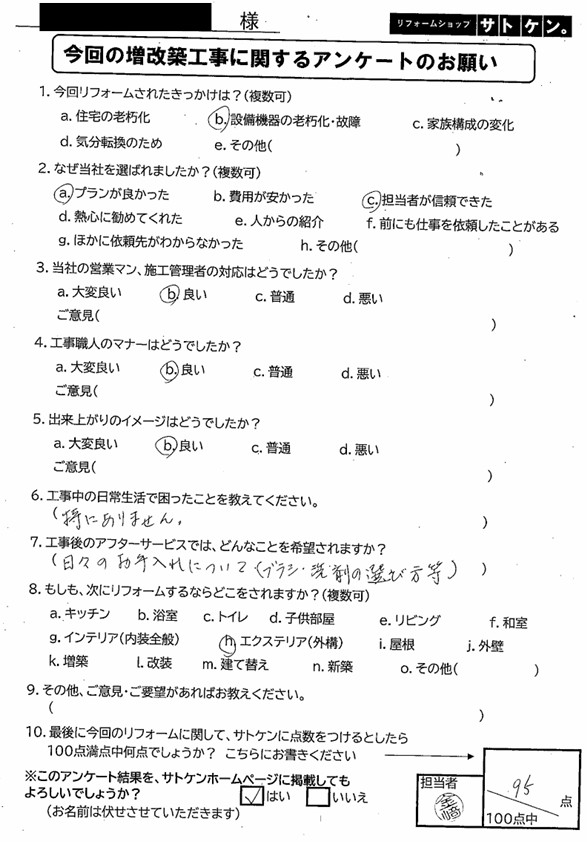 様
リフォームショップ サトケン。
今回の増改築工事に関するアンケートのお願い
1. 今回リフォームされたきっかけは？(複数可)
a. 住宅の老朽化 b. 設備機器の老朽化・故障 c. 家族構成の変化
d. 気分転換のため e. その他( )
2. なぜ当社を選ばれましたか？(複数可)
a. プランが良かった b. 費用が安かった c. 担当者が信頼できた
d. 熱心に勧めてくれた e. 人からの紹介 f. 前にも仕事を依頼したことがある
g. ほかに依頼先がわからなかった h. その他( )
3. 当社の営業マン、施工管理者の対応はどうでしたか？
a. 大変良い b. 良い c. 普通 d. 悪い
ご意見( )
4. 工事職人のマナーはどうでしたか？
a. 大変良い b. 良い c. 普通 d. 悪い
ご意見( )
5. 出来上がりのイメージはどうでしたか？
a. 大変良い b. 良い c. 普通 d. 悪い
ご意見( )
6. 工事中の日常生活で困ったことを教えてください。
(特にありません。 )
7. 工事後のアフターサービスでは、どんなことを希望されますか？
(日々のお手入れについて(ブラシ・洗剤の選び方等) )
8. もしも、次にリフォームするならどこをされますか？(複数可)
a. キッチン b. 浴室 c. トイレ d. 子供部屋 e. リビング f. 和室
g. インテリア(内装全般) h. エクステリア(外構) i. 屋根 j. 外壁
k. 増築 l. 改装 m. 建て替え n. 新築 o. その他( )
9. その他、ご意見・ご要望があればお教えください。
( )
10. 最後に今回のリフォームに関して、サトケンに点数をつけるとしたら
100点満点中何点でしょうか？ こちらにお書きください
※このアンケート結果を、サトケンホームページに掲載しても
よろしいでしょうか？ はい いいえ
(お名前は伏せさせていただきます)
担当者
95 点
100点中